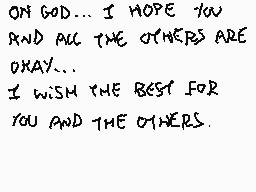 OH GOD... I HOPE YOU
AND ALL THE OTHERS ARE
OKAY...
I WISH THE BEST FOR
YOU AND THE OTHERS.